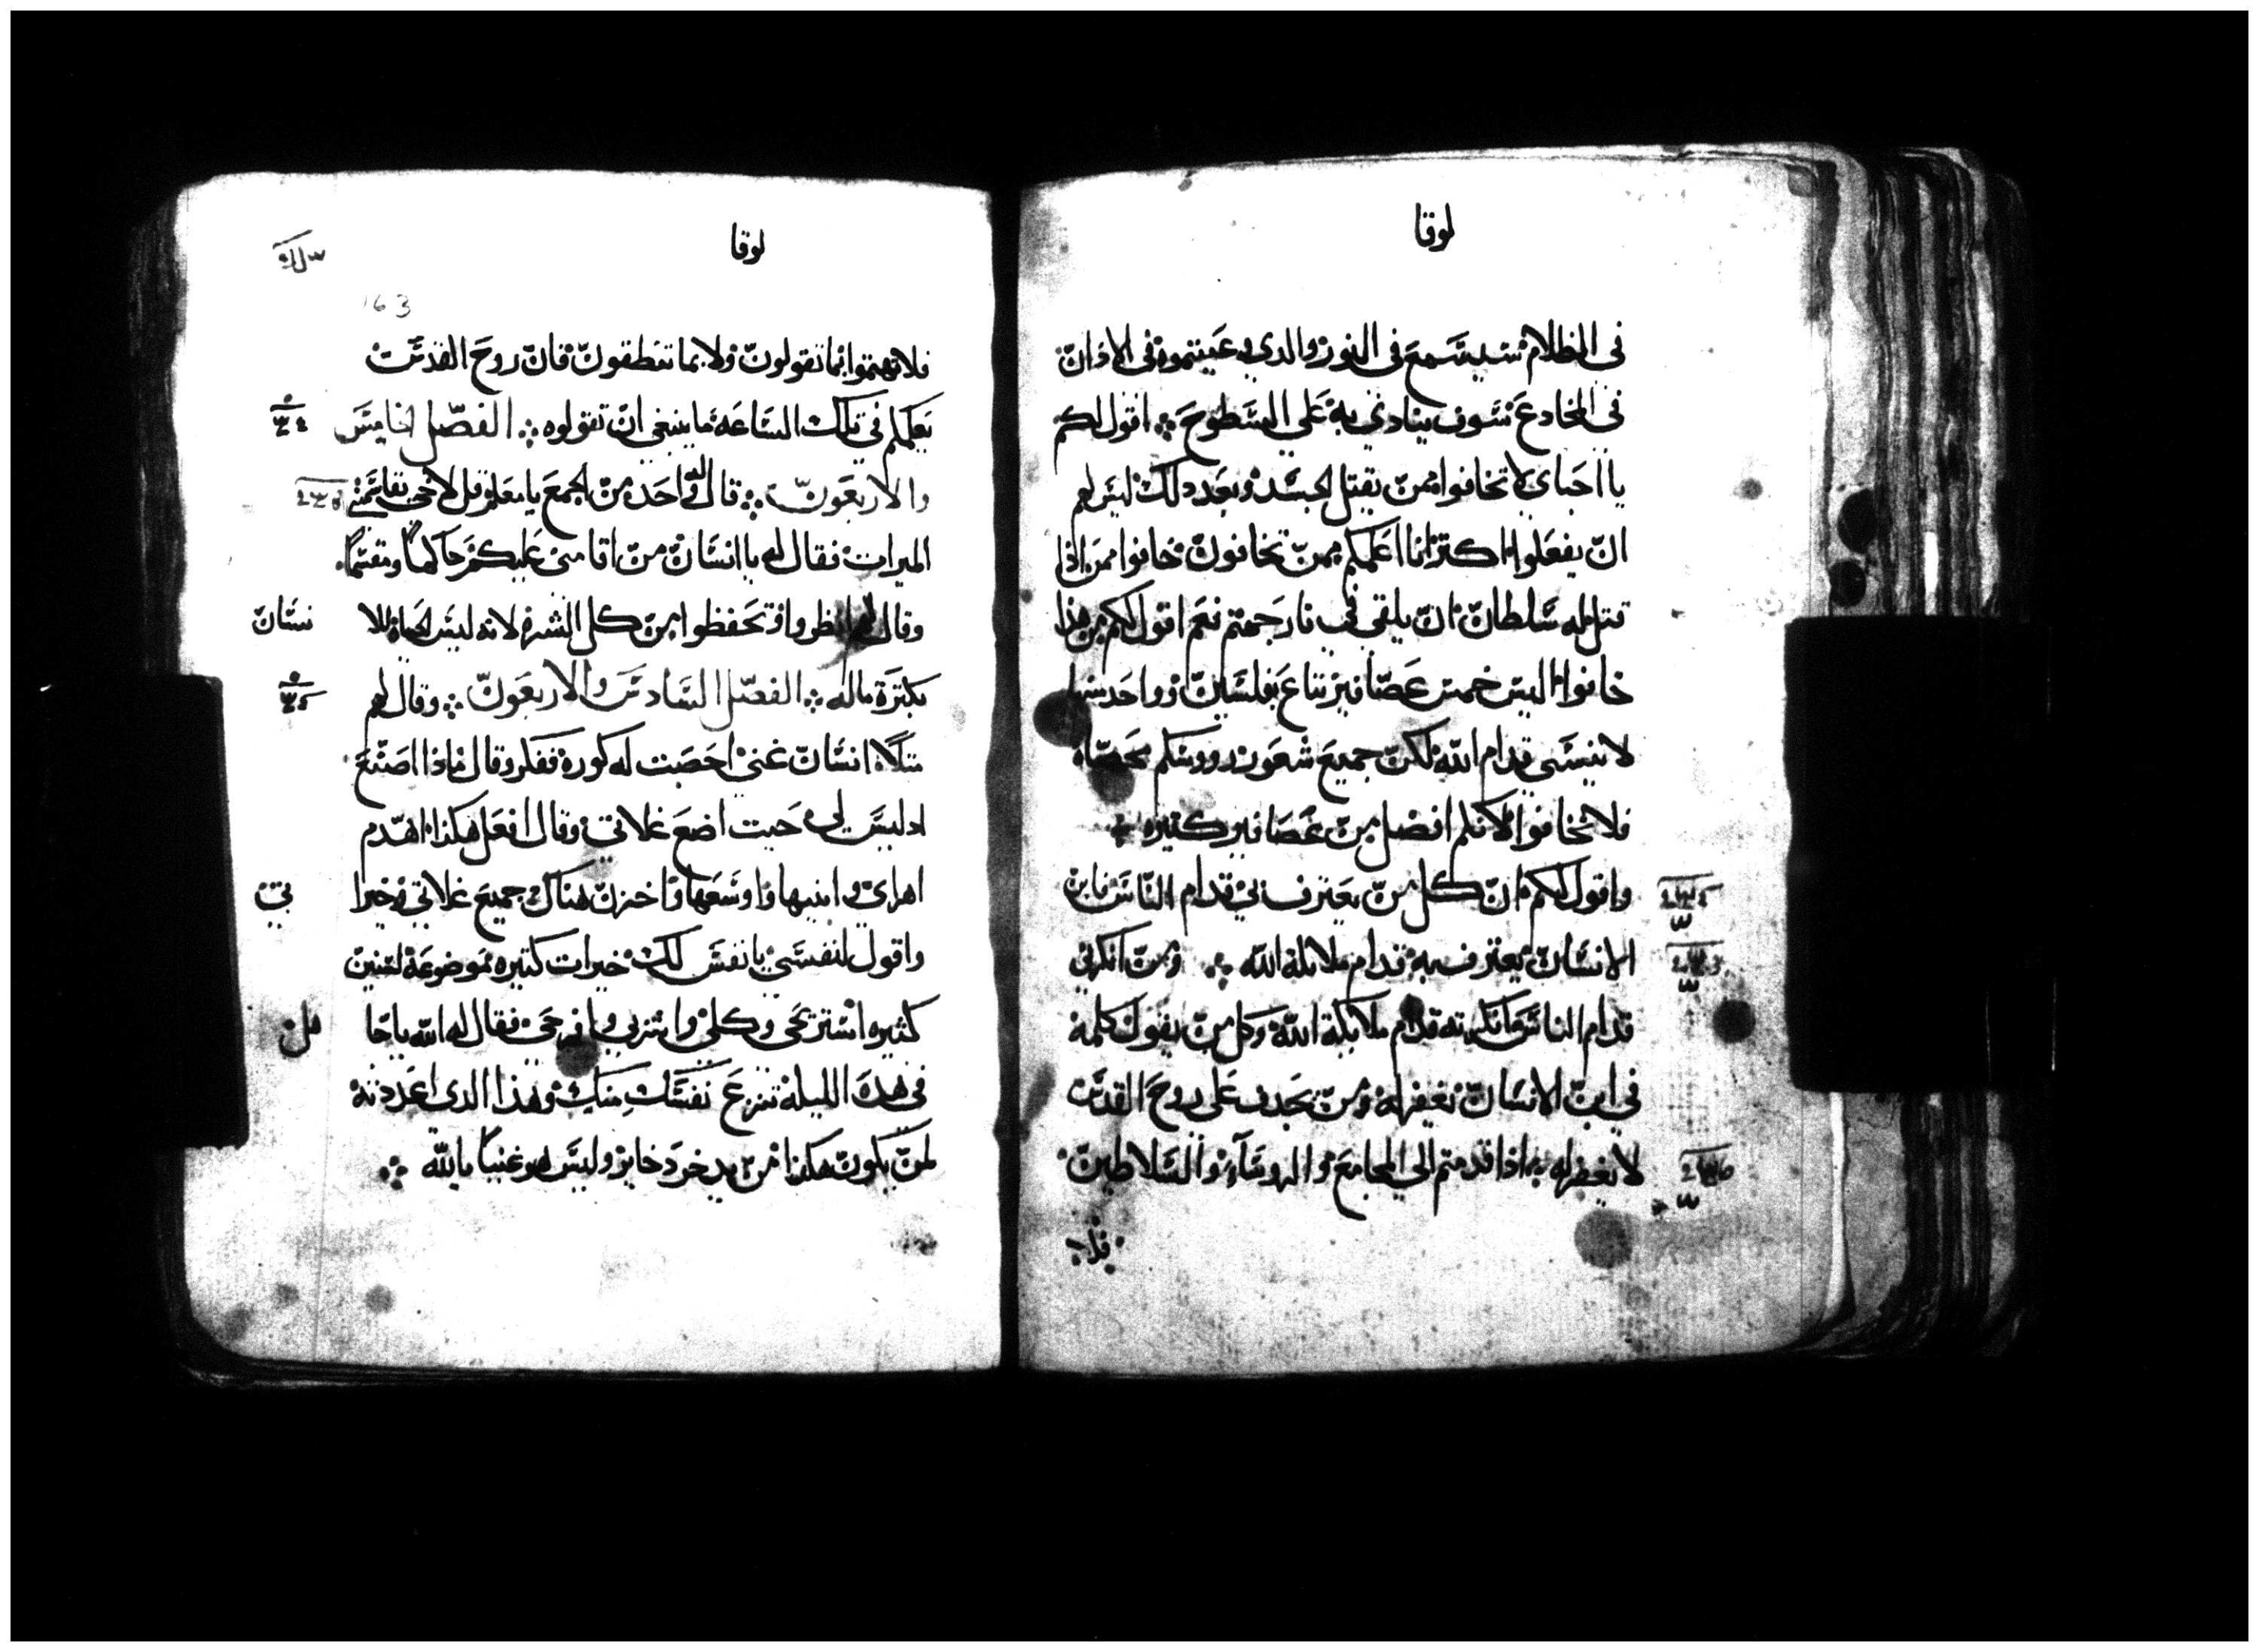 لوقا
في الظلام سيسمع في النور والدي وعيتموه في الاذان
في المخادع سوف ينادي به علي السطوح ܀ اقول لكم
يا احباي لا تخافوا ممن يقتل الجسد وبعد دلك ليس لهم
ان يفعلوا اكتر انا اعلمكم ممن تخافون خافوا ممن اذا
قتل له سلطان ان يلقي في نار جهنم نعم اقول لكم من هذا
خافوا اليس خمس عصافير تباع بفلسين وواحد منها
لا ينسي قدام الله لكن جميع شعور رووسكم محصاه
فلا تخافوا لانكم افضل من عصافير كتيره
واقول لكم ان كل من يعترف بي قدام الناس فابن
الانسان يعترف به قدام ملايكة الله ܀ ومن انكرني
قدام الناس انكرته قدام ملايكة الله وكل من يقول كلمة
في ابن الانسان يغفر له ومن يجدف علي روح القدس
لا يغفر له اذا قدمتم الي المجامع والروسآء والسلاطين
فلا
لوقا
163
فلا تهتموا بما تقولون ولا بما تنطقون فان روح القدس
يعلمكم في تلك الساعه ما ينبغي ان تقولوه ܀ الفصل الخامس
والاربعون ܀ قال له واحد من الجمع يا معلم قل لاخي يقاسمني
الميرات فقال له يا انسان من اقامني عليكم حاكما ومقسما
وقال لهم انظروا وتحفظوا من كل الشره لانه ليس الحياه للا نسان
بكترة ماله ܀ الفصل السادس والاربعون ܀ وقال لهم
متلا انسان غني اخصبت له كوره ففكر وقال ماذا اصنع
اد ليس لي حيت اضع غلاتي وقال افعل هكذا اهدم
اهراي وابنيها واوسعها واخزن هناك جميع غلاتي وخيرا تي
واقول لنفسي يا نفس لك خيرات كتيره موضوعة لسنين
كثيره استريحي وكلي واشربي وافرحي فقال له الله يا جا هل
في هده الليله تنزع نفسك منك وهذا الدي اعددته
لمن يكون هكذا من يدخر دخاير وليس هو غنيا بالله ܀